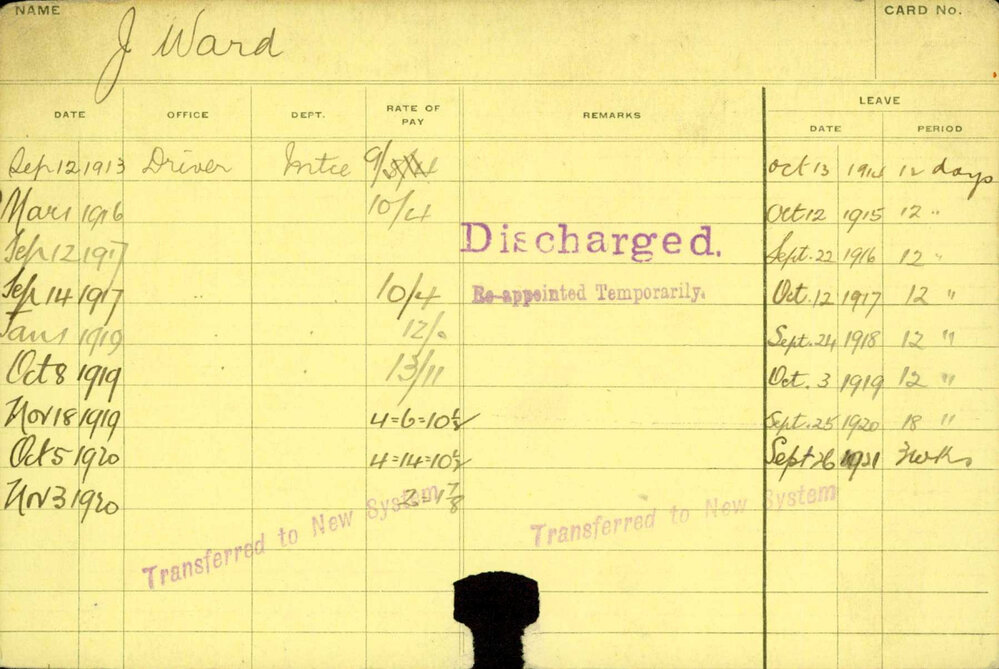 NAME J Ward CARD No.
LEAVE
DATE OFFICE DEPT. RATE OF PAY REMARKS DATE PERIOD
Sep 12 1913 Driver Mtce 9/ Oct 13 1914 12 days
Mar 1 1916 10/4 Oct 12 1915 12 "
Sep 12 1917 Discharged. Sept. 22 1916 12 "
Sep 14 1917 10/4 Re-appointed Temporarily. Oct. 12 1917 12 "
Jan 1 1919 12/. Sept. 24 1918 12 "
Oct 8 1919 13/11 Oct. 3 1919 12 "
Nov 18 1919 4=6=10½ Sept. 25 1920 18 "
Oct 5 1920 4=14=10½ Sept 26 1921 3 wks
Nov 3 1920
Transferred to New System Transferred to New System